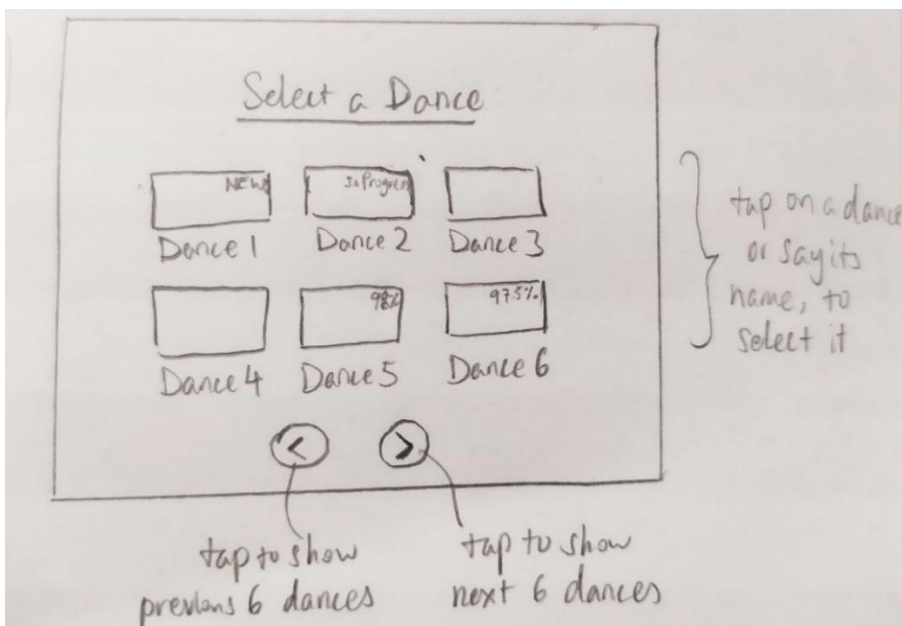 Select a Dance
NEW
In Progress
Dance 1 Dance 2 Dance 3
98%
97.5%
Dance 4 Dance 5 Dance 6
< >
tap on a dance
or say its
name, to
select it
tap to show
previous 6 dances
tap to show
next 6 dances